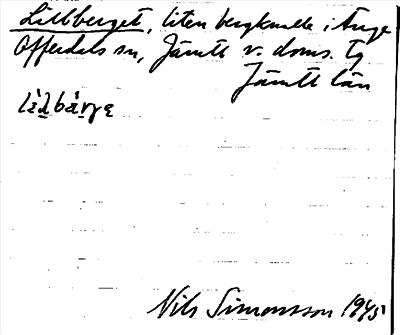 Lillberget, liten bergkulle i Ånge
Offerdals sn, Jämtl v. doms. tg
Jämtl län
Nils Simonsson 1945